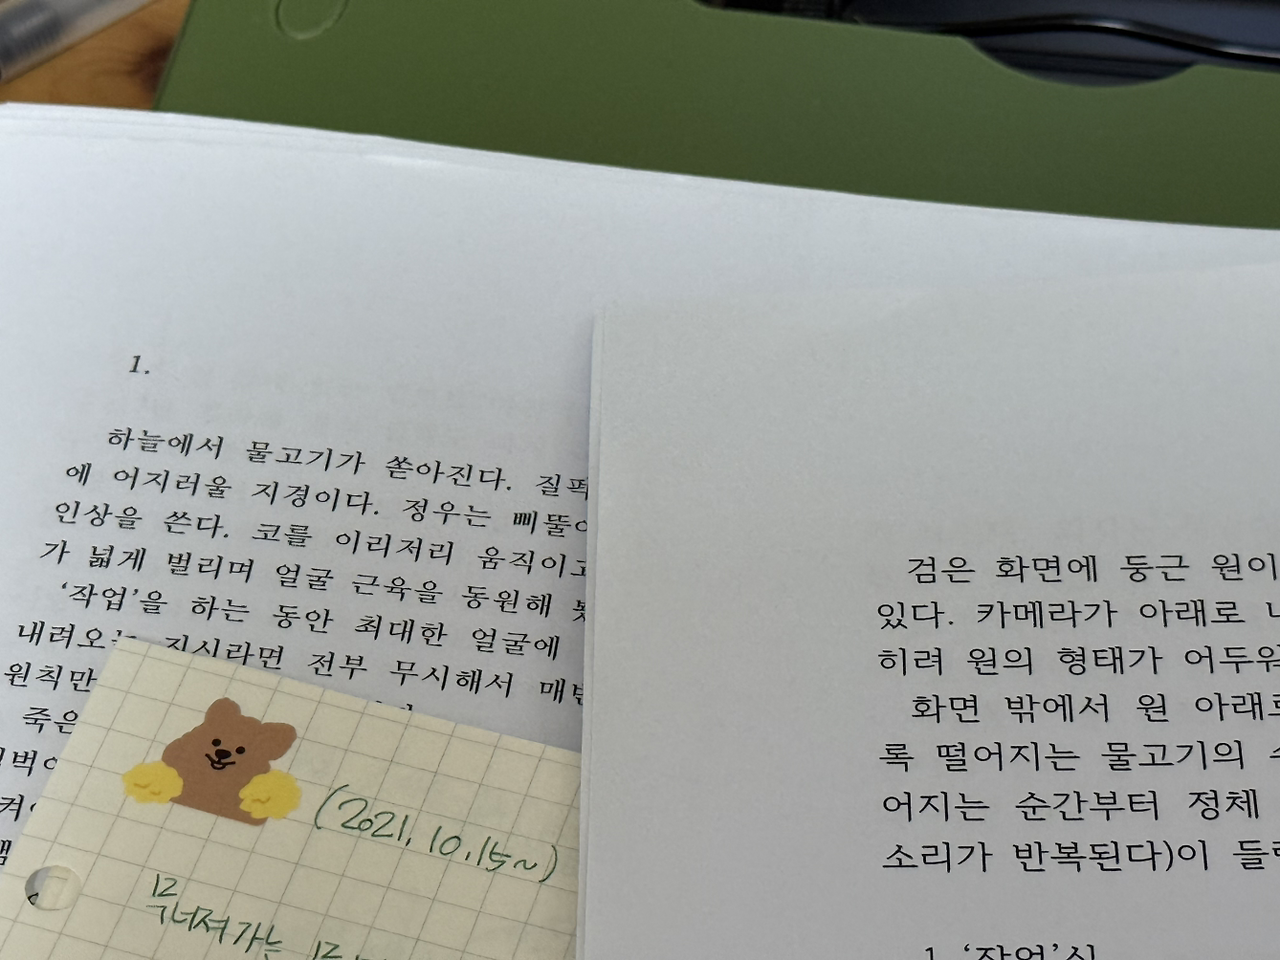 1.
하늘에서 물고기가 쏟아진다. 질퍽
에 어지러울 지경이다. 정우는 삐뚤
인상을 쓴다. 코를 이리저리 움직이고
가 넓게 벌리며 얼굴 근육을 동원해
‘작업’을 하는 동안 최대한 얼굴에
내려오는 지시라면 전부 무시해서 매번
원칙만
죽은
(2021. 10. 15~)
무너져가는
검은 화면에 둥근 원이
있다. 카메라가 아래로
히려 원의 형태가 어두워
화면 밖에서 원 아래로
록 떨어지는 물고기의
어지는 순간부터 정체
소리가 반복된다)이
1. ‘작업’식